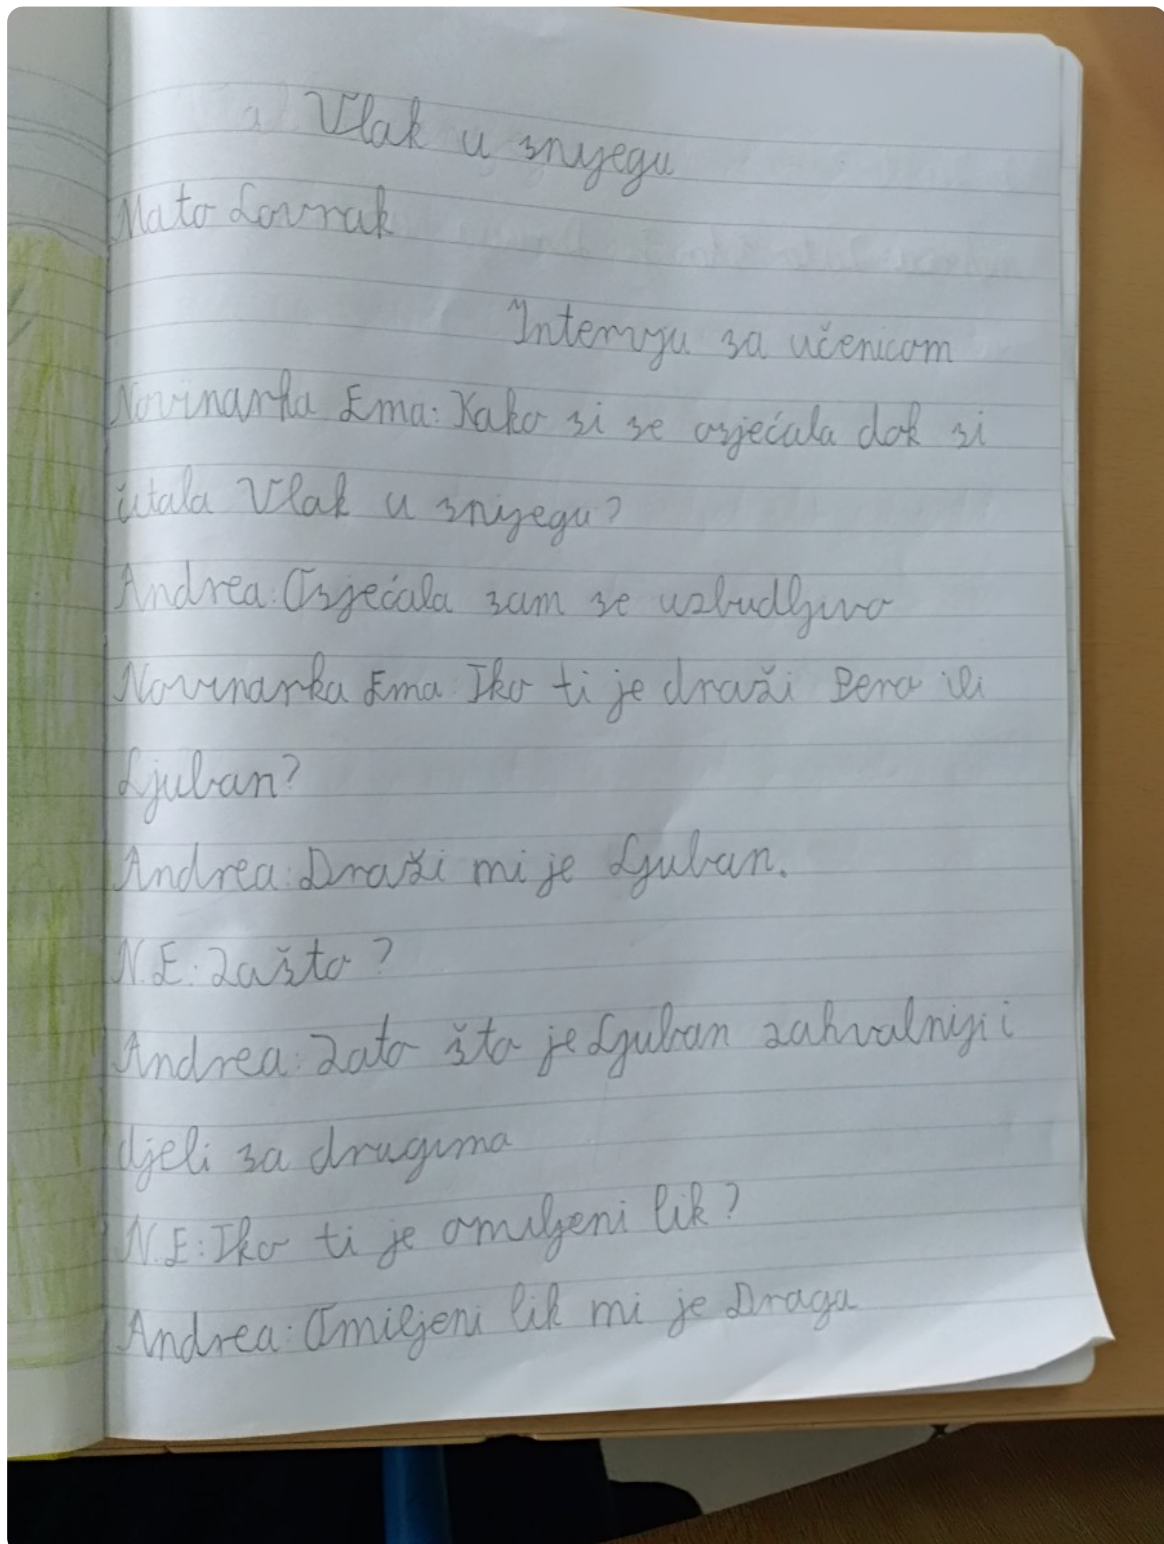 Vlak u snijegu
Mato Lovrak
Intervju sa učenicom
Novinarka Ema: Kako si se osjećala dok si
čitala Vlak u snijegu?
Andrea: Osjećala sam se uzbudljivo
Novinarka Ema: Tko ti je draži Pero ili
Ljuban?
Andrea: Draži mi je Ljuban.
N.E.: Zašto?
Andrea: Zato što je Ljuban zahvalniji i
djeli sa drugima
N.E: Tko ti je omiljeni lik?
Andrea: Omiljeni lik mi je Draga